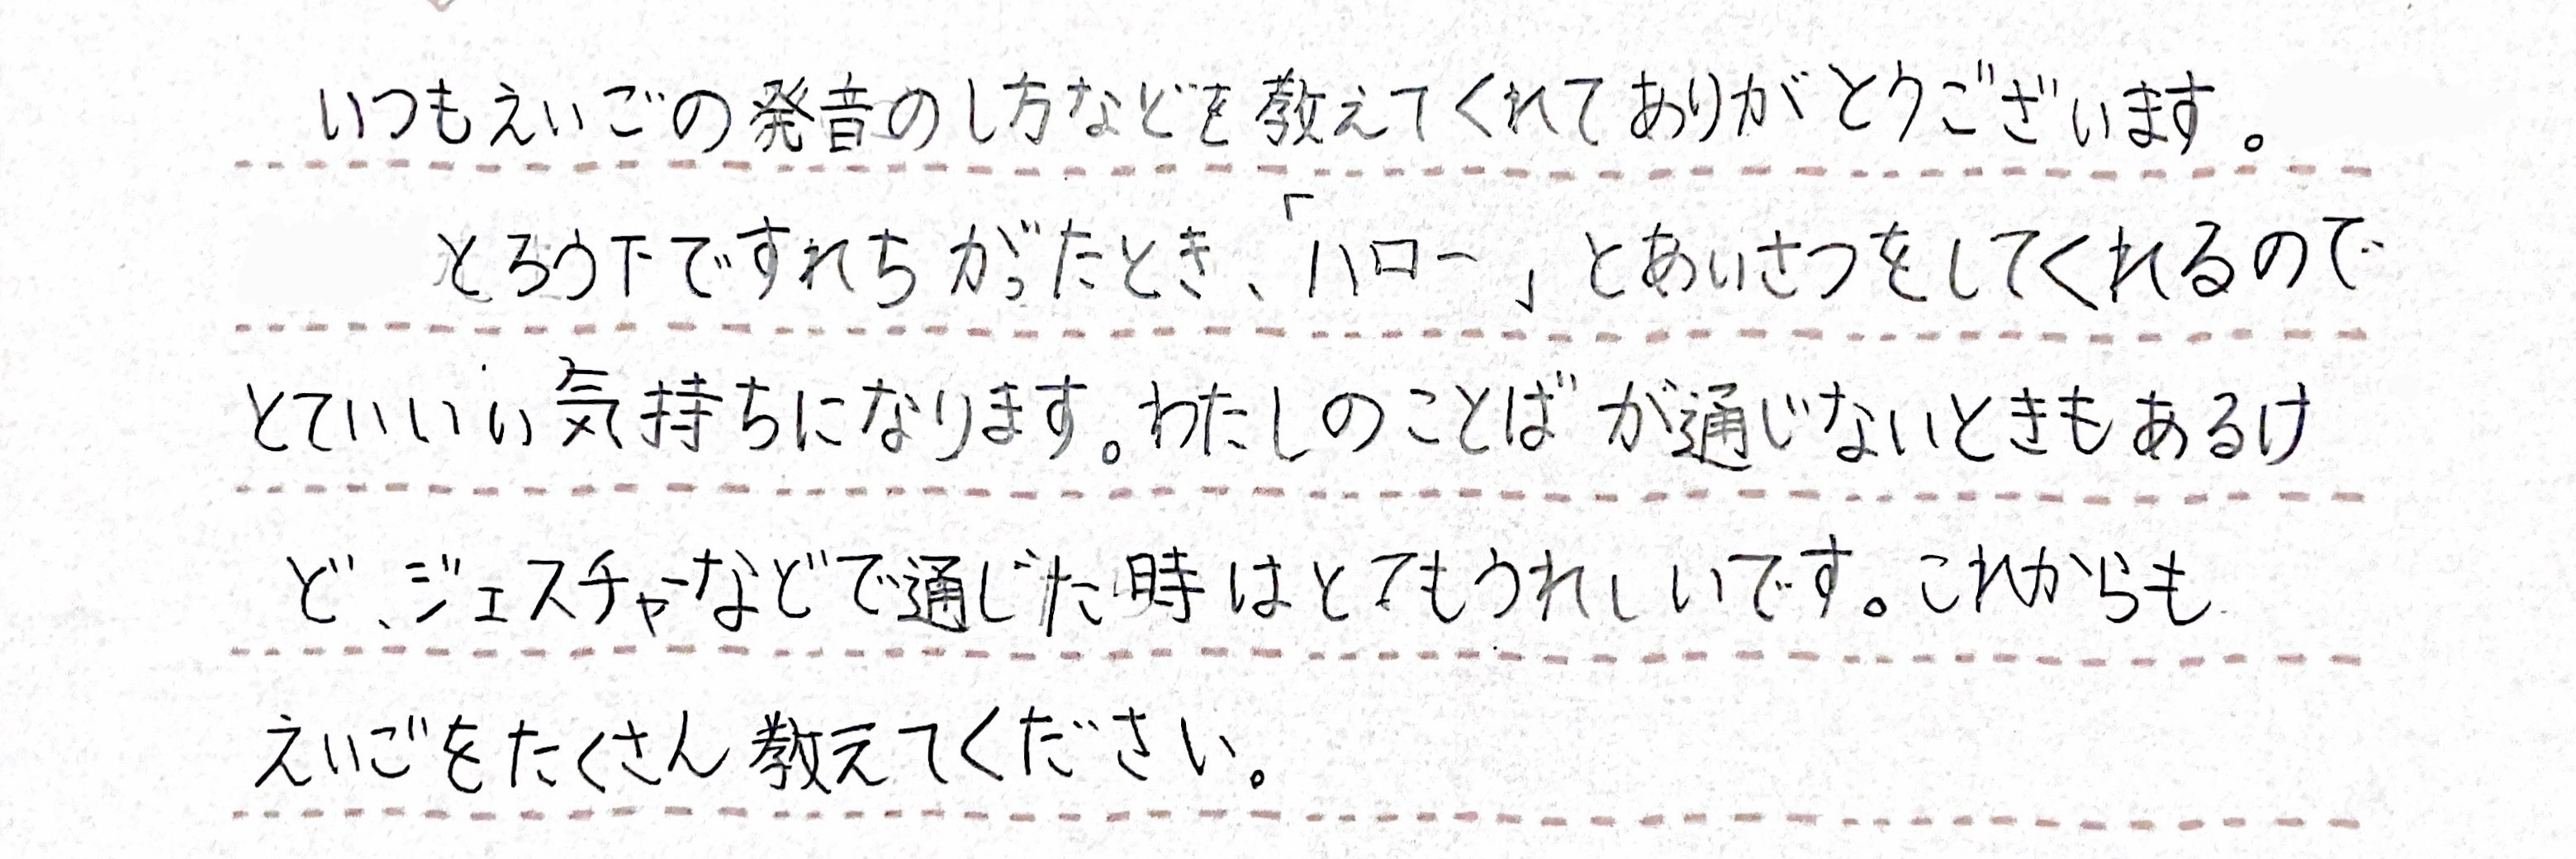 いつもえいごの発音のし方などを教えてくれてありがとうございます。
とろう下ですれちがったとき、「ハロー」とあいさつをしてくれるので
とていいい気持ちになります。わたしのことばが通じないときもあるけ
ど、ジェスチャーなどで通じた時はとてもうれしいです。これからも
えいごをたくさん教えてください。